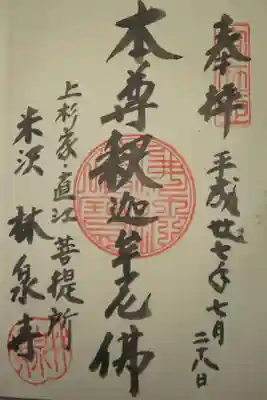 奉拝
平成廿七年七月二十八日
本尊釈迦牟尼佛
上杉家・直江菩提所
米沢 林泉寺